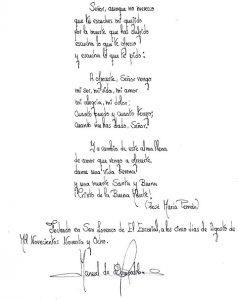 Señor, aunque no merezco
que tú escuches mi quejido
por la muerte que has sufrido
escucha lo que te ofrezco
y escucha lo que te pido:
A ofrecerte, Señor vengo
mi ser, mi vida, mi amor
mi alegría, mi dolor;
cuanto puedo y cuanto tengo;
cuanto me has dado, Señor.
Y a cambio de esta alma llena
de amor que vengo a ofrecerte,
dame una vida serena
y una muerte Santa y Buena
¡Cristo de la Buena Muerte!
(José María Pemán)
Fechado en San Lorenzo de El Escorial, a los cinco días de Agosto de
Mil Novecientos Noventa y Ocho.
Manuel de